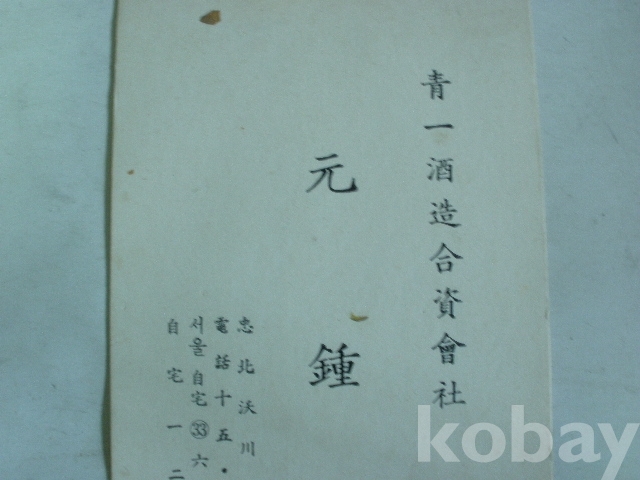 青一酒造合資會社
元鍾
忠北沃川
電話十五·
서울自宅㉝六
自宅一二
kobay